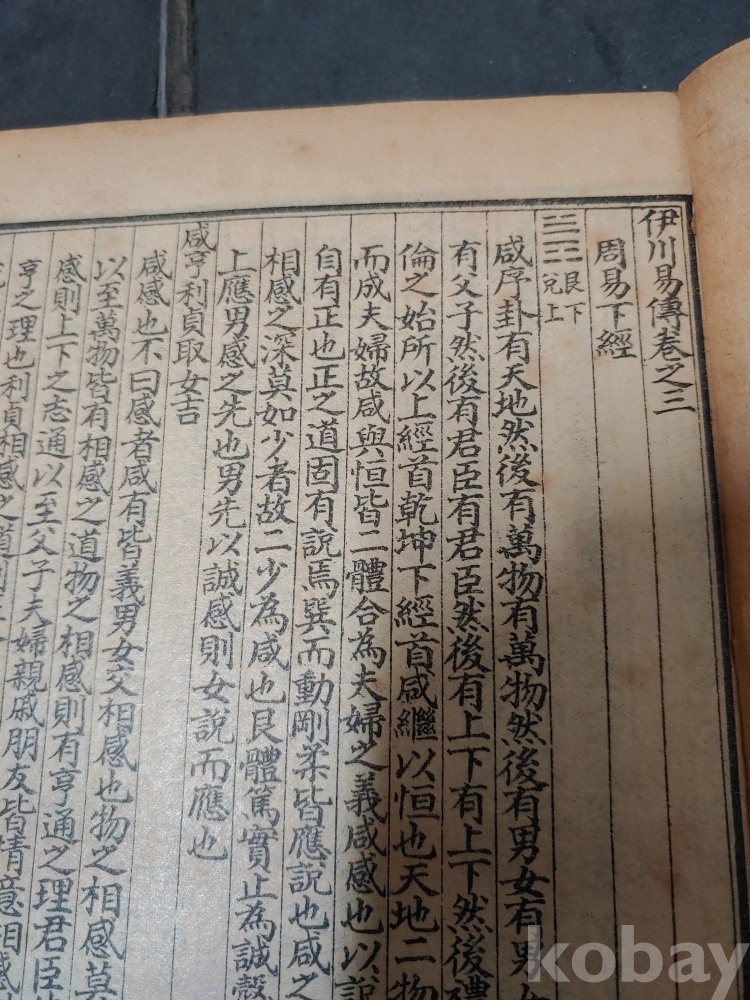 伊川易傳卷之三
周易下經
艮下
兌上
咸序卦有天地然後有萬物有萬物然後有男女有男
有父子然後有君臣有君臣然後有上下有上下然後禮
倫之始所以上經首乾坤下經首咸繼以恒也天地二物
而成夫婦故咸與恒皆二體合為夫婦之義咸感也以說
自有正也正之道固有說焉巽而動剛柔皆應說也咸之
相感之深莫如少者故二少為咸也艮體篤實止為誠慤
上應男感之先也男先以誠感則女說而應也
咸亨利貞取女吉
咸感也不曰感者咸有皆義男女交相感也物之相感莫
以至萬物皆有相感之道物之相感則有亨通之理君臣
感則上下之志通以至父子夫婦親戚朋友皆情意相感
亨之理也利貞相感之道
kobay